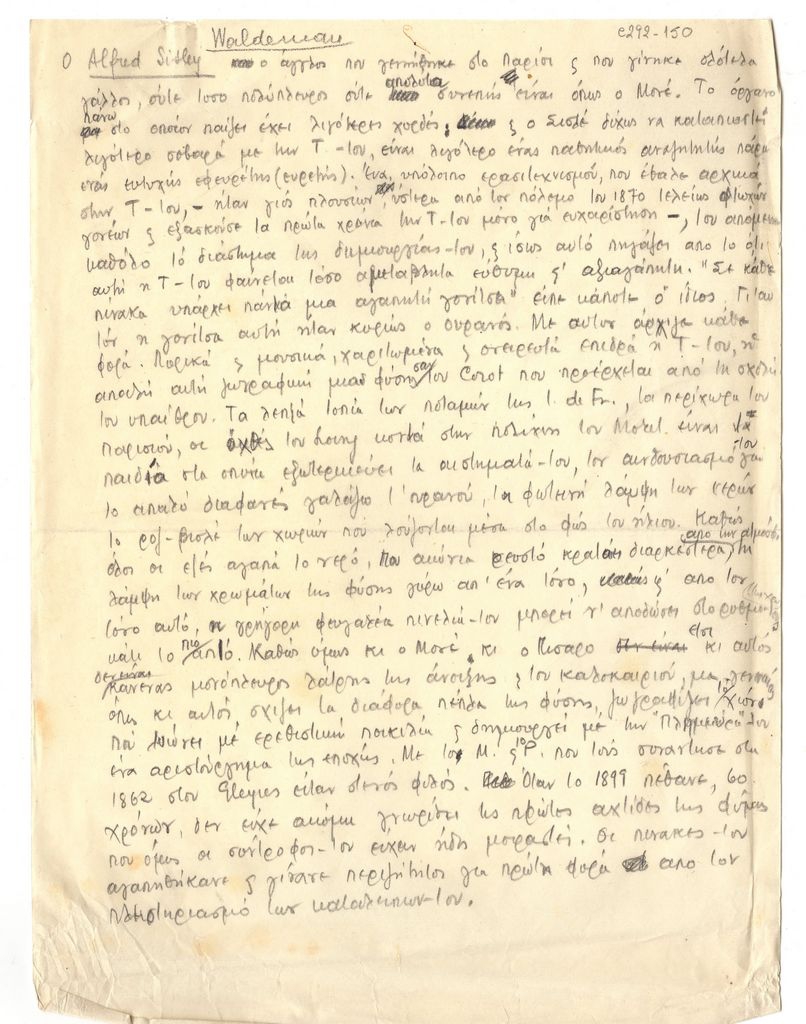 Waldemar
e292-150
Ο Alfred Sisley ο άγγλος που γεννήθηκε στο Παρίσι ς που γίνηκε ολότελα
γάλλος, ούτε τόσο πολύπλευρος ούτε απόλυτα συνεπής είναι όπως ο Μονέ. Το όργανο
πάνω στο οποίον παίζει έχει λιγότερες χορδές, ς ο Σισλέ δίχως να καταπιαστεί
λιγότερο σοβαρά με την Τ-του, είναι λιγότερο ένας παθητικός αναζητητής παρά
ένας ευτυχής εφευρέτης (ευρετής). Ένα υπόλοιπο ερασιτεχνισμού, που έβαλε αρχικά
στην Τ-του, – ήταν γιός πλουσίων, ύστερα από τον πόλεμο του 1870 τελείως φτωχών
γονέων ς εξασκούσε τα πρώτα χρόνια την Τ-του μόνο γιά ευχαρίστηση –, του απόμεινε
καθόλο τό διάστημα της δημιουργίας-του, ς ίσως αυτό πηγάζει απο το ότι
αυτή η Τ-του φαίνεται τόσο αμετάβλητα εύθυμη ς' αξιαγάπητη. "Σε κάθε
πίνακα υπάρχει πάντα μια αγαπητή γωνίτσα" είπε κάποτε ο ίδιος. Γι'αυ
τόν η γωνίτσα αυτή ήταν κυρίως ο ουρανός. Με αυτόν άρχιζε κάθε
φορά. Λυρικά ς μουσικά, χαριτωμένα ς ονειρευτά επιδρά η Τ-του, η
απαλή αυτή ζωγραφική μιας φύσης σαν του Corot που προέρχεται από τη σχολή
του υπαίθρου. Τα λεπτά τοπία των ποταμών της I. de Fr., τα περίχωρα του
Παρισιού, οι όχθες του Loing κοντά στην πολίχνη του Moret είναι τα
παιδιά στα οποία εξωτερικεύει τα αισθήματά-του, τον ενθουσιασμό-του για
το απαλό διαφανές γαλάζιο τ' ουρανού, τη φωτεινή λάμψη των νερών
το ροζ-βιολέ των χωριών που λούζονται μέσα στο φώς του ήλιου. Καθώς
όλοι οι εξής αγαπά το νερό, που ακόνια ρευστό κρατάει διαρκέστερα, από την ατμόσφαιρα τη
λάμψη των χρωμάτων της φύσης γύρω απ' ένα τόνο, ς' απο τον
τόνο αυτό, η γρήγορη φευγαλέα πινελιά-του μπορεί ν' αποδώσει στο ρυθμικό
κάτι το πιό απτό. Καθώς όμως κι ο Μονέ, κι ο Πισαρο έτσι κι αυτός
δεν είναι κανένας μονόπλευρος λάτρης της άνοιξης ς του καλοκαιριού, μα
όπως κι αυτός σχίζει τα διάφορα πέπλα της φύσης, ζωγραφίζει το χιόνι
που λιώνει με ερεθιστική ποικιλία ς δημιουργεί με την "Πλημμύρα" του
ένα αριστούργημα της εποχής. Με τον Μ. ς τον Ρ. που τους συνάντησε στα
1862 στου Gleyres είταν στενός φίλος. Όταν το 1899 πέθανε, 60
χρόνων, δεν είχε ακόμη γνωρίσει τις πρώτες αχτίδες της φήμης
που όμως οι σύντροφοι-του είχαν ήδη μοιραστεί. Οι πίνακες-του
αγαπηθήκανε ς γίνανε περιζήτητοι για πρώτη φορά απο τον
πλειστηριασμό των καταλοίπων-του.